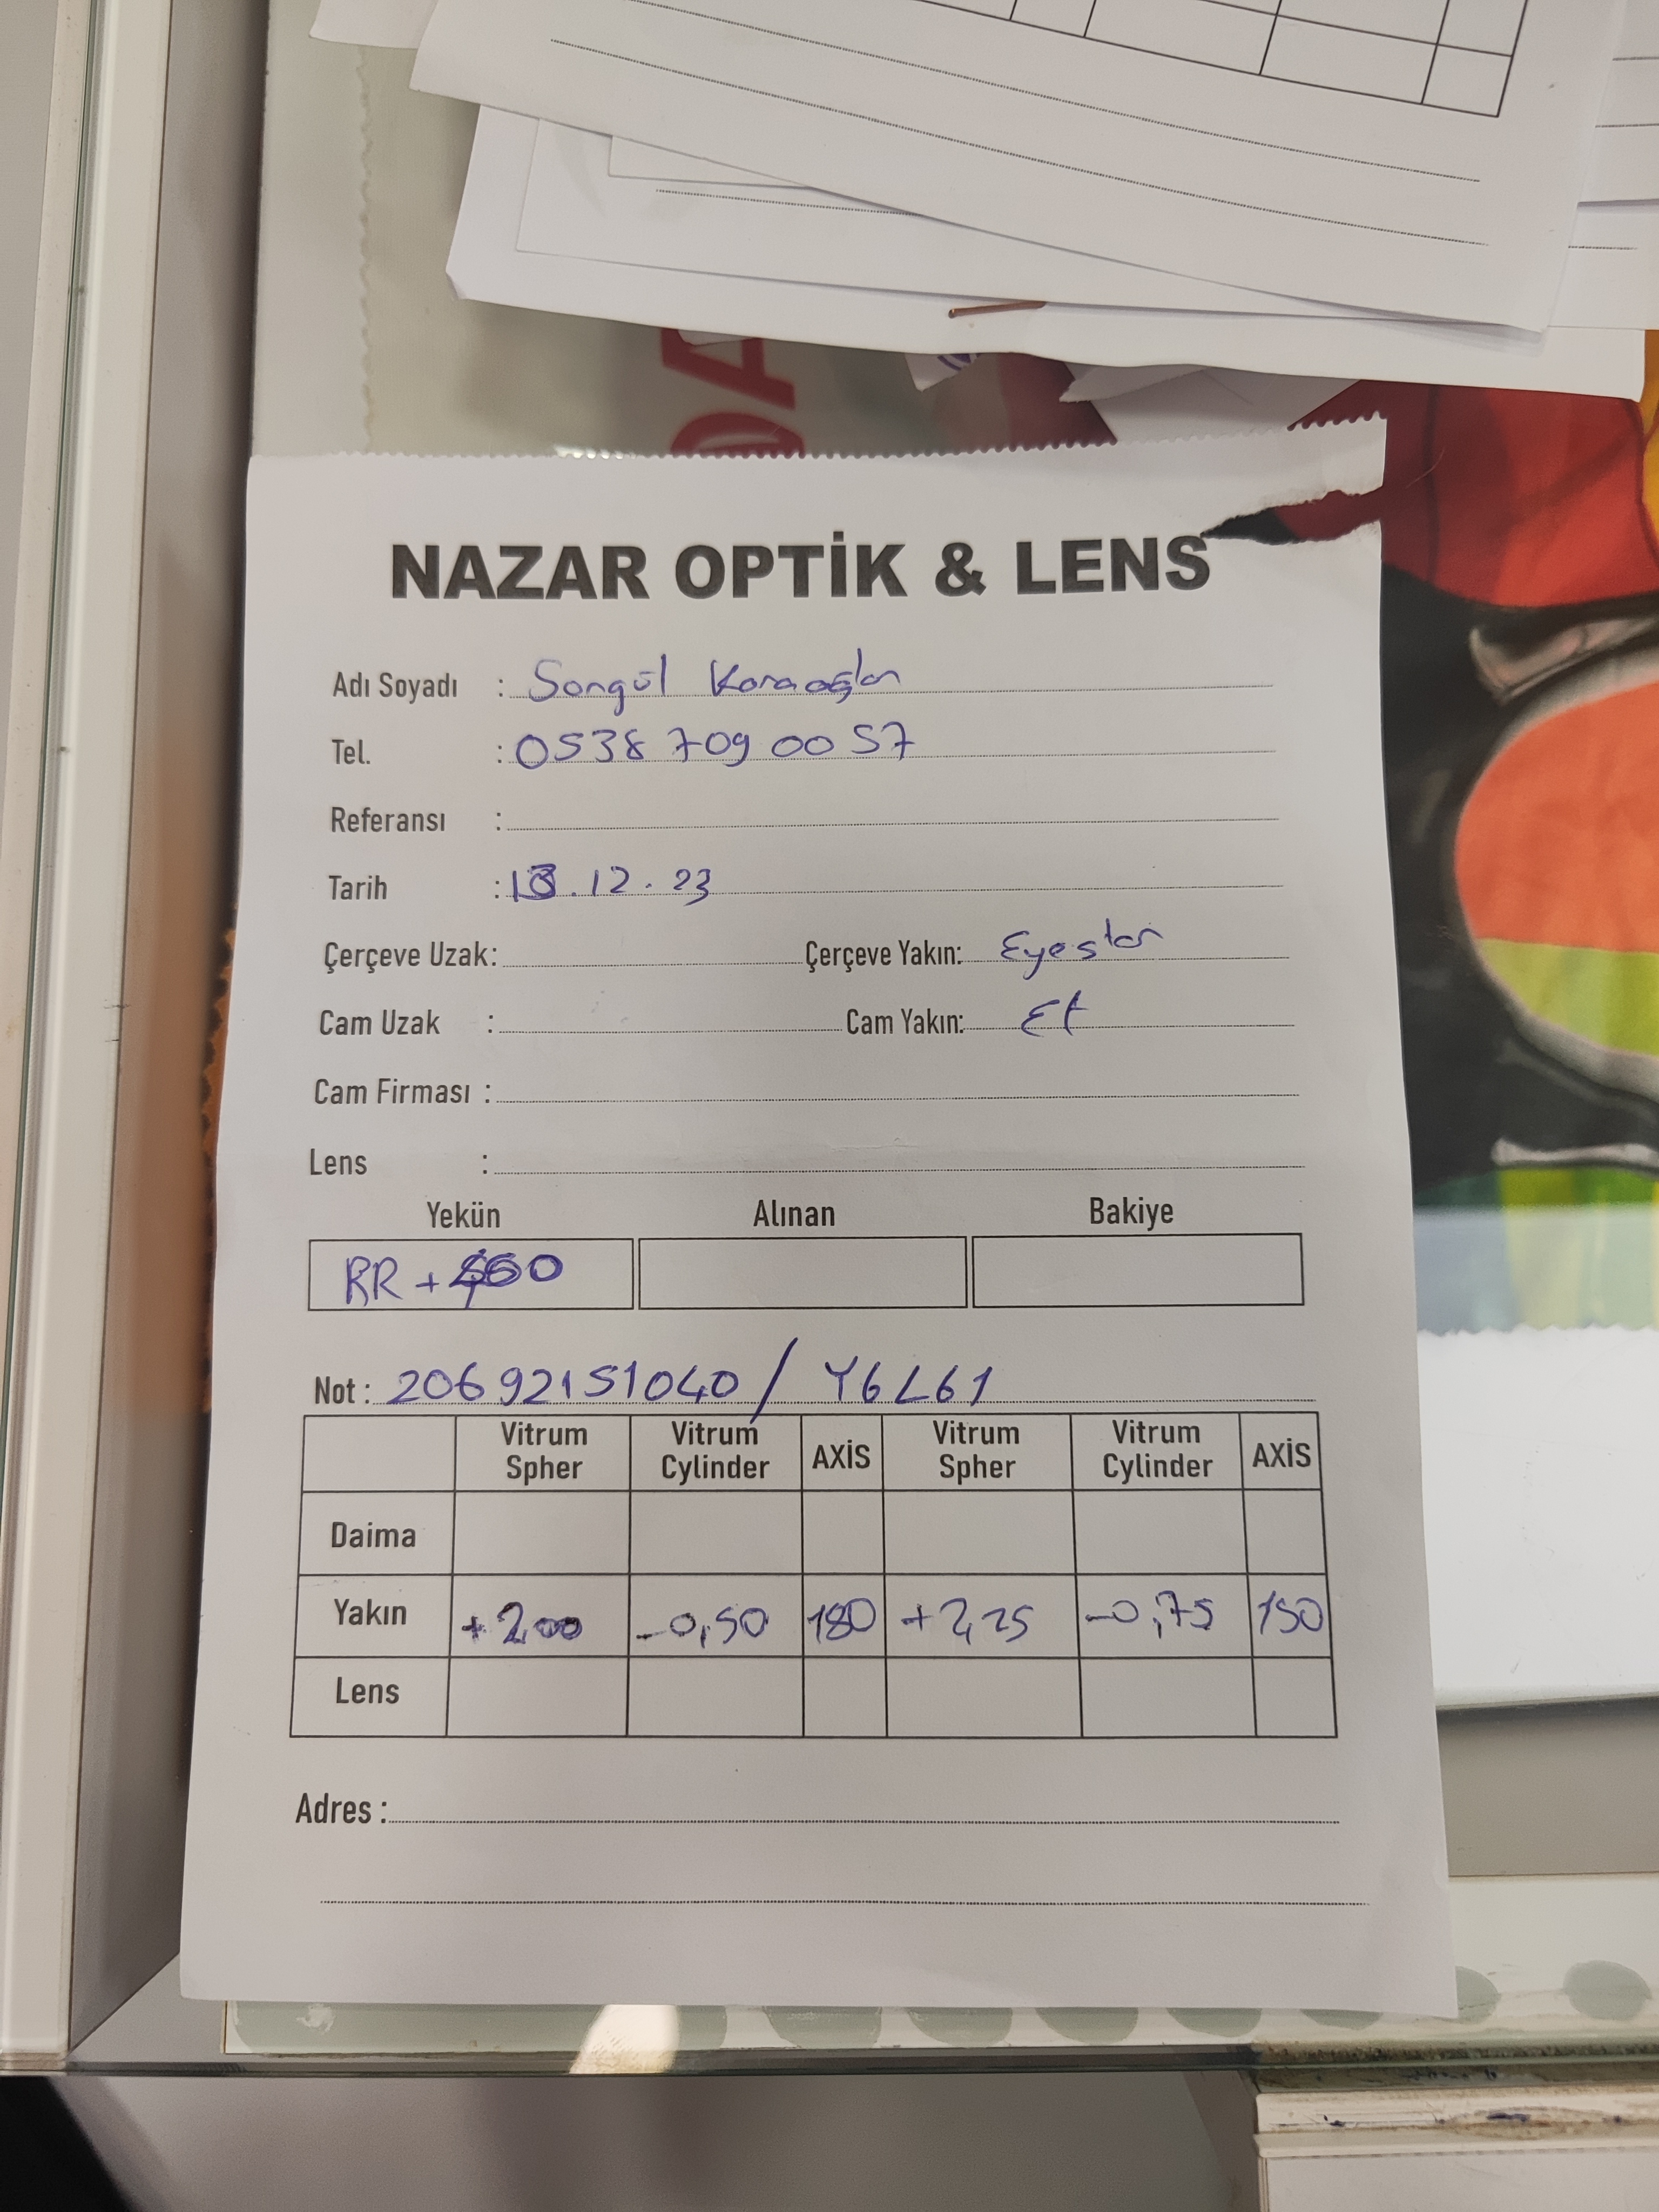 NAZAR OPTİK & LENS
Adı Soyadı : Songül Karaoğlan
Tel. : 0538 709 00 57
Referansı :
Tarih : 13.12.23
Çerçeve Uzak: Çerçeve Yakın: Eyestar
Cam Uzak : Cam Yakın: Et
Cam Firması :
Lens :
Yekün Alınan Bakiye
RR +
Not : 20692151040 / Y6L61
Vitrum Spher Vitrum Cylinder AXİS Vitrum Spher Vitrum Cylinder AXİS
Daima
Yakın +2,00 -0,50 180 +2,25 -0,75 150
Lens
Adres :